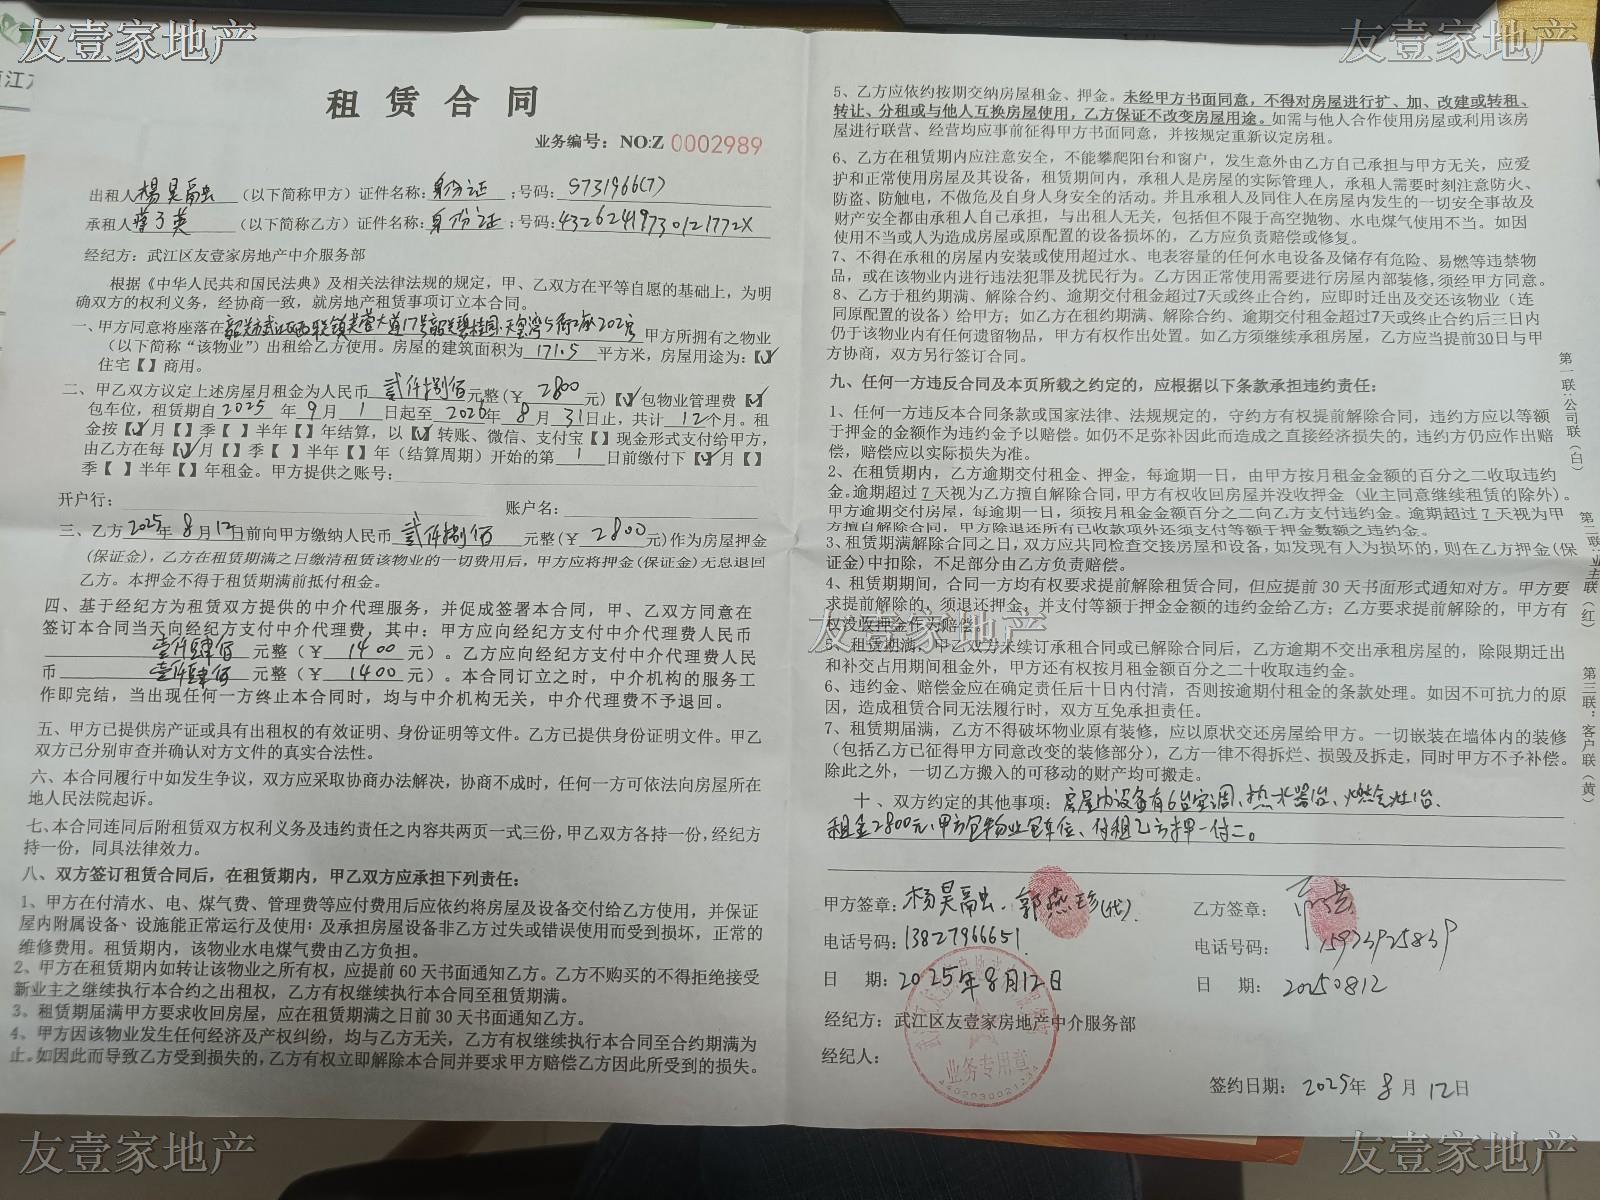 友壹家地产
友壹家地产
租赁合同
业务编号：NO:Z 0002989
出租人杨昊融（以下简称甲方）证件名称：身份证；号码：S731966(7)
承租人（以下简称乙方）证件名称：身份证；号码：43262419730121772X
经纪方：武江区友壹家房地产中介服务部
根据《中华人民共和国民法典》及相关法律法规的规定，甲、乙双方在平等自愿的基础上，为明
确双方的权利义务，经协商一致，就房地产租赁事项订立本合同。
一、甲方同意将座落在韶关市武江区西联镇芙蓉大道17号韶关碧桂园·天玺湾5街2座202房甲方所拥有之物业
（以下简称“该物业”）出租给乙方使用。房屋的建筑面积为171.5平方米，房屋用途为：【√】
住宅【 】商用。
二、甲乙双方议定上述房屋月租金为人民币贰仟捌佰元整（￥2800元）【√】包物业管理费【√】
包车位，租赁期自2025年9月1日起至2026年8月31日止，共计12个月。租
金按【√】月【 】季【 】半年【 】年结算，以【√】转账、微信、支付宝【 】现金形式支付给甲方，
由乙方在每【√】月【 】季【 】半年【 】年（结算周期）开始的第1日前缴付下【√】月【 】
季【 】半年【 】年租金。甲方提供之账号：
开户行： 账户名：
三、乙方2025年8月12日前向甲方缴纳人民币贰仟捌佰元整（￥2800元)作为房屋押金
(保证金)，乙方在租赁期满之日缴清租赁该物业的一切费用后，甲方应将押金(保证金)无息退回
乙方。本押金不得于租赁期满前抵付租金。
四、基于经纪方为租赁双方提供的中介代理服务，并促成签署本合同，甲、乙双方同意在
签订本合同当天向经纪方支付中介代理费，其中：甲方应向经纪方支付中介代理费人民币
壹仟肆佰元整（￥1400元）。乙方应向经纪方支付中介代理费人民
币壹仟肆佰元整（￥1400元）。本合同订立之时，中介机构的服务工
作即完结，当出现任何一方终止本合同时，均与中介机构无关，中介代理费不予退回。
五、甲方已提供房产证或具有出租权的有效证明、身份证明等文件。乙方已提供身份证明文件。甲乙
双方已分别审查并确认对方文件的真实合法性。
六、本合同履行中如发生争议，双方应采取协商办法解决，协商不成时，任何一方可依法向房屋所在
地人民法院起诉。
七、本合同连同后附租赁双方权利义务及违约责任之内容共两页一式三份，甲乙双方各持一份，经纪方
持一份，同具法律效力。
八、双方签订租赁合同后，在租赁期内，甲乙双方应承担下列责任：
1、甲方在付清水、电、煤气费、管理费等应付费用后应依约将房屋及设备交付给乙方使用，并保证
屋内附属设备、设施能正常运行及使用；及承担房屋设备非乙方过失或错误使用而受到损坏，正常的
维修费用。租赁期内，该物业水电煤气费由乙方负担。
2、甲方在租赁期内如转让该物业之所有权，应提前60天书面通知乙方。乙方不购买的不得拒绝接受
新业主之继续执行本合约之出租权，乙方有权继续执行本合同至租赁期满。
3、租赁期届满甲方要求收回房屋，应在租赁期满之日前30天书面通知乙方。
4、甲方因该物业发生任何经济及产权纠纷，均与乙方无关，乙方有权继续执行本合同至合约期满为
止。如因此而导致乙方受到损失的，乙方有权立即解除本合同并要求甲方赔偿乙方因此所受到的损失。
5、乙方应依约按期交纳房屋租金、押金。未经甲方书面同意，不得对房屋进行扩、加、改建或转租、
转让、分租或与他人互换房屋使用，乙方保证不改变房屋用途。如需与他人合作使用房屋或利用该房
屋进行联营、经营均应事前征得甲方书面同意，并按规定重新议定房租。
6、乙方在租赁期内应注意安全，不能攀爬阳台和窗户，发生意外由乙方自己承担与甲方无关，应爱
护和正常使用房屋及其设备，租赁期间内，承租人是房屋的实际管理人，承租人需要时刻注意防火、
防盗、防触电，不做危及自身人身安全的活动。并且承租人及同住人在房屋内发生的一切安全事故及
财产安全都由承租人自己承担，与出租人无关，包括但不限于高空抛物、水电煤气使用不当。如因
使用不当或人为造成房屋或原配置的设备损坏的，乙方应负责赔偿或修复。
7、不得在承租的房屋内安装或使用超过水、电表容量的任何水电设备及储存有危险、易燃等违禁物
品，或在该物业内进行违法犯罪及扰民行为。乙方因正常使用需要进行房屋内部装修,须经甲方同意。
8、乙方于租约期满、解除合约、逾期交付租金超过7天或终止合约，应即时迁出及交还该物业（连
同原配置的设备）给甲方；如乙方在租约期满、解除合约、逾期交付租金超过7天或终止合约后三日内
仍于该物业内有任何遗留物品，甲方有权作出处置。如乙方须继续承租房屋，乙方应当提前30日与甲
方协商，双方另行签订合同。
九、任何一方违反合同及本页所载之约定的，应根据以下条款承担违约责任：
1、任何一方违反本合同条款或国家法律、法规规定的，守约方有权提前解除合同，违约方应以等额
于押金的金额作为违约金予以赔偿。如仍不足弥补因此而造成之直接经济损失的，违约方仍应作出赔
偿，赔偿应以实际损失为准。
2、在租赁期内，乙方逾期交付租金、押金，每逾期一日，由甲方按月租金金额的百分之二收取违约
金。逾期超过7天视为乙方擅自解除合同，甲方有权收回房屋并没收押金（业主同意继续租赁的除外)。
甲方逾期交付房屋，每逾期一日，须按月租金金额百分之二向乙方支付违约金。逾期超过7天视为甲
方擅自解除合同，甲方除退还所有已收款项外还须支付等额于押金数额之违约金。
3、租赁期满解除合同之日，双方应共同检查交接房屋和设备，如发现有人为损坏的，则在乙方押金(保
证金)中扣除，不足部分由乙方负责赔偿。
4、租赁期期间，合同一方均有权要求提前解除租赁合同，但应提前30天书面形式通知对方。甲方要
求提前解除的，须退还押金，并支付等额于押金金额的违约金给乙方；乙方要求提前解除的，甲方有
权没收押金作为赔偿。
友壹家地产
5、租赁期满，甲乙双方未续订承租合同或已解除合同后，乙方逾期不交出承租房屋的，除限期迁出
和补交占用期间租金外，甲方还有权按月租金额百分之二十收取违约金。
6、违约金、赔偿金应在确定责任后十日内付清，否则按逾期付租金的条款处理。如因不可抗力的原
因，造成租赁合同无法履行时，双方互免承担责任。
7、租赁期届满，乙方不得破坏物业原有装修，应以原状交还房屋给甲方。一切嵌装在墙体内的装修
（包括乙方已征得甲方同意改变的装修部分），乙方一律不得拆烂、损毁及拆走，同时甲方不予补偿。
除此之外，一切乙方搬入的可移动的财产均可搬走。
十、双方约定的其他事项：房屋内设备有6台空调、热水器1台、燃气灶1台、
租金2800元、甲方包物业包车位、付租乙方押一付二。
甲方签章：杨昊融、郭燕珍(代)
电话号码：13827966651
日 期：2025年8月12日
乙方签章：
电话号码：15973925839
日 期：20250812
经纪方：武江区友壹家房地产中介服务部
经纪人：
业务专用章
4402030021234
签约日期：2025年8月12日
第一联：公司联（白）
第二联：业主联（红）
第三联：客户联（黄）
友壹家地产
友壹家地产